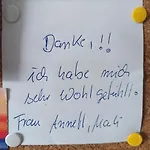 Danke,!!
ich habe mich
sehr wohl gefühlt.
Frau Annett,